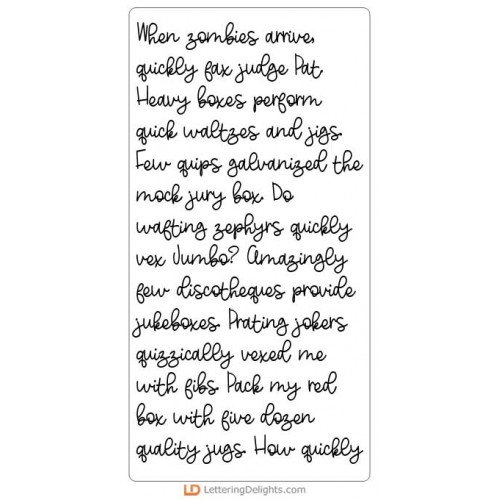 When zombies arrive,
quickly fax judge Pat.
Heavy boxes perform
quick waltzes and jigs.
Few quips galvanized the
mock jury box. Do
wafting zephyrs quickly
vex Jumbo? Amazingly
few discotheques provide
jukeboxes. Prating jokers
quizzically vexed me
with fibs. Pack my red
box with five dozen
quality jugs. How quickly
LD LetteringDelights.com